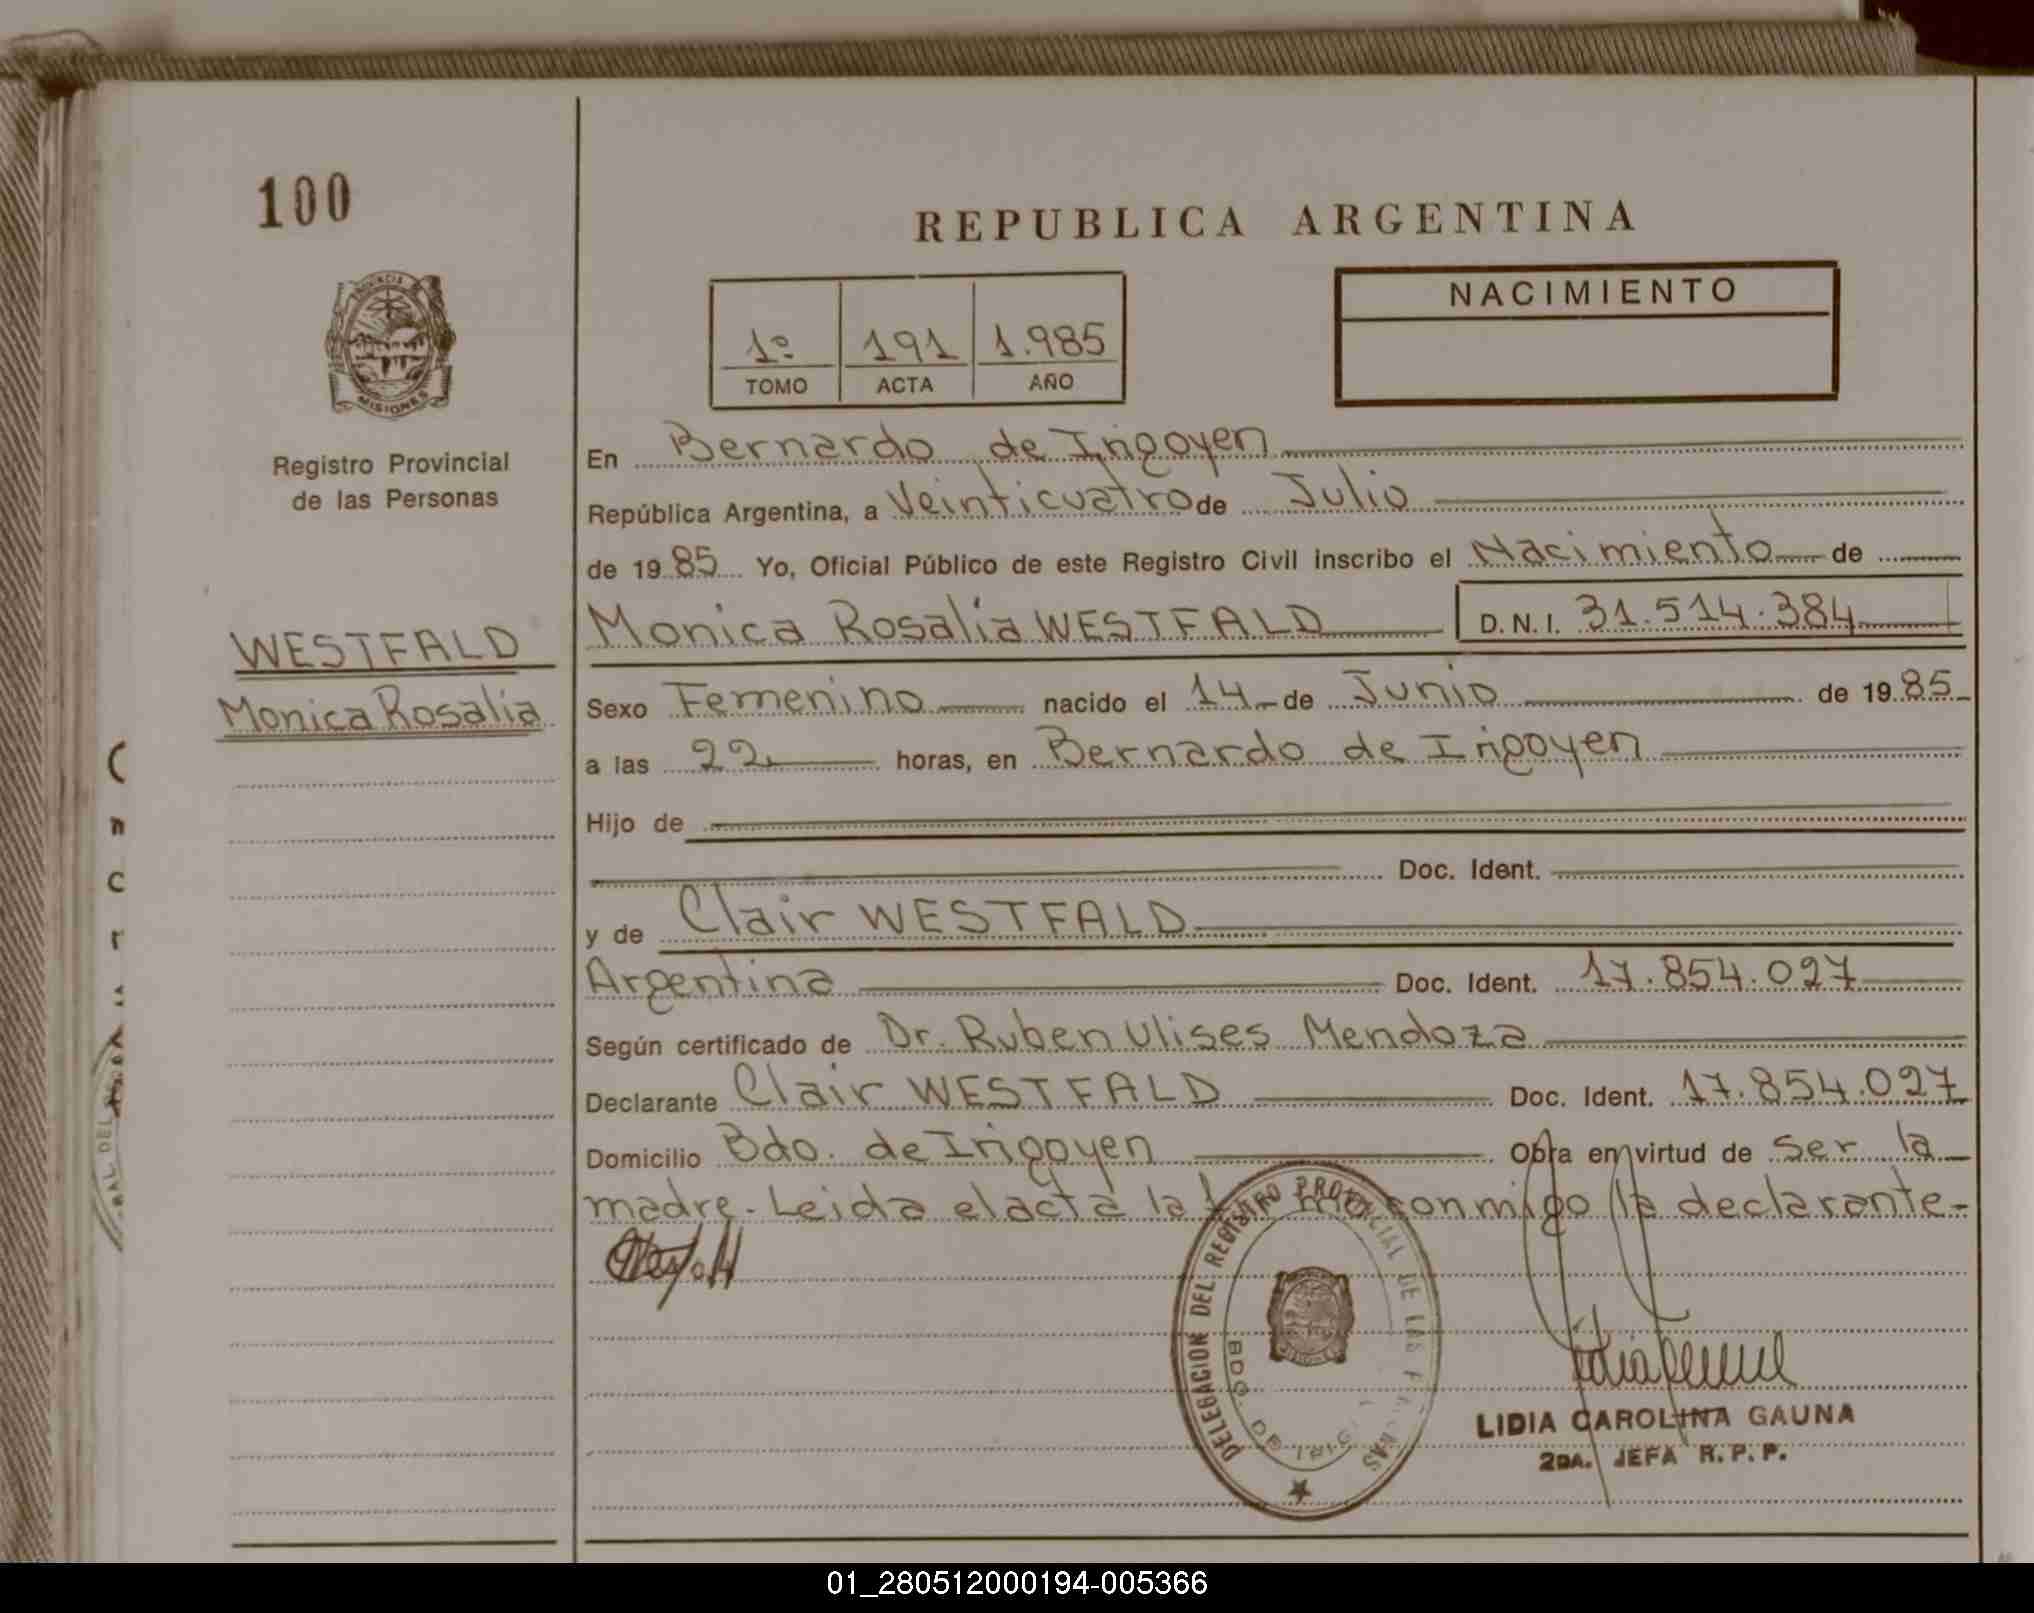 100
REPUBLICA ARGENTINA
NACIMIENTO
1º 191 1.985
TOMO ACTA AÑO
MISIONES
Registro Provincial
de las Personas
En Bernardo de Irigoyen
República Argentina, a Veinticuatro de Julio
de 1985 Yo, Oficial Público de este Registro Civil inscribo el Nacimiento de
Monica Rosalia WESTFALD D.N.I. 31.514.384
WESTFALD
Monica Rosalia
Sexo Femenino nacido el 14 de Junio de 1985
a las 22 horas, en Bernardo de Irigoyen
Hijo de
Doc. Ident.
y de Clair WESTFALD
Argentina Doc. Ident. 17.854.027
Según certificado de Dr. Ruben Ulises Mendoza
Declarante Clair WESTFALD Doc. Ident. 17.854.027
Domicilio Bdo. de Irigoyen Obra en virtud de ser la
madre. Leida el acta la conmigo la declarante-
DELEGACION DEL REGISTRO PROVINCIAL DE LAS PERSONAS
BDO. DE IRIGOYEN
LIDIA CAROLINA GAUNA
2DA. JEFA R.P.P.
01_280512000194-005366